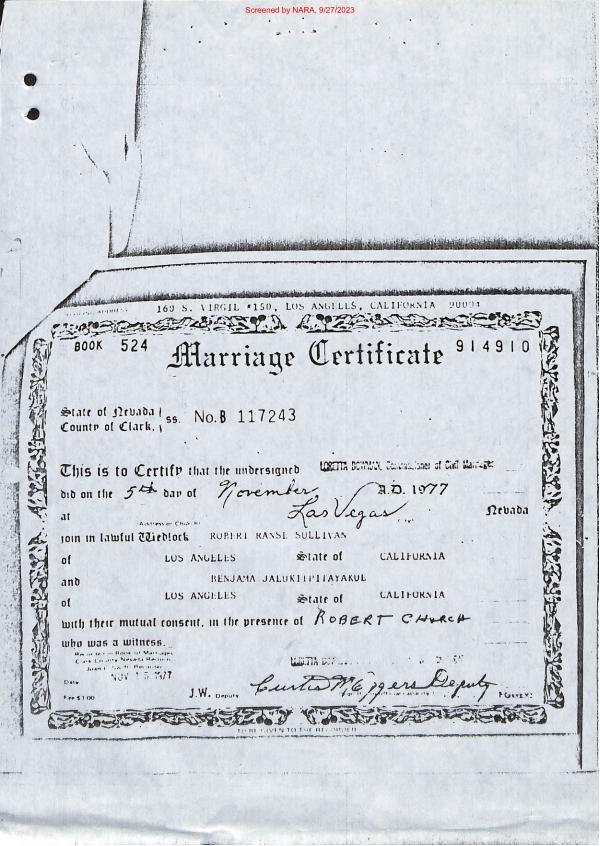 Screened by NARA, 9/27/2023
160 S. VIRGIL #150, LOS ANGELES, CALIFORNIA 90004
BOOK 524
Marriage Certificate
914910
State of Nevada
County of Clark, ss. No. B 117243
This is to Certify that the undersigned LORETTA BOWMAN, Commissioner of Civil Marriages
did on the 5th day of November A.D. 1977
at Las Vegas Nevada
Address or Church City
join in lawful Wedlock ROBERT RANSE SULLIVAN
of LOS ANGELES State of CALIFORNIA
and BENJAMA
of LOS ANGELES State of CALIFORNIA
with their mutual consent, in the presence of ROBERT CHURCH
who was a witness.
Recorded in Book of Marriages
Clark County Nevada Records
Recorder
LORETTA
Date NOV 15 1977
Fee $1.00
J.W. Deputy
Curtis M Eggers Deputy
TO BE GIVEN TO THE RECORDER